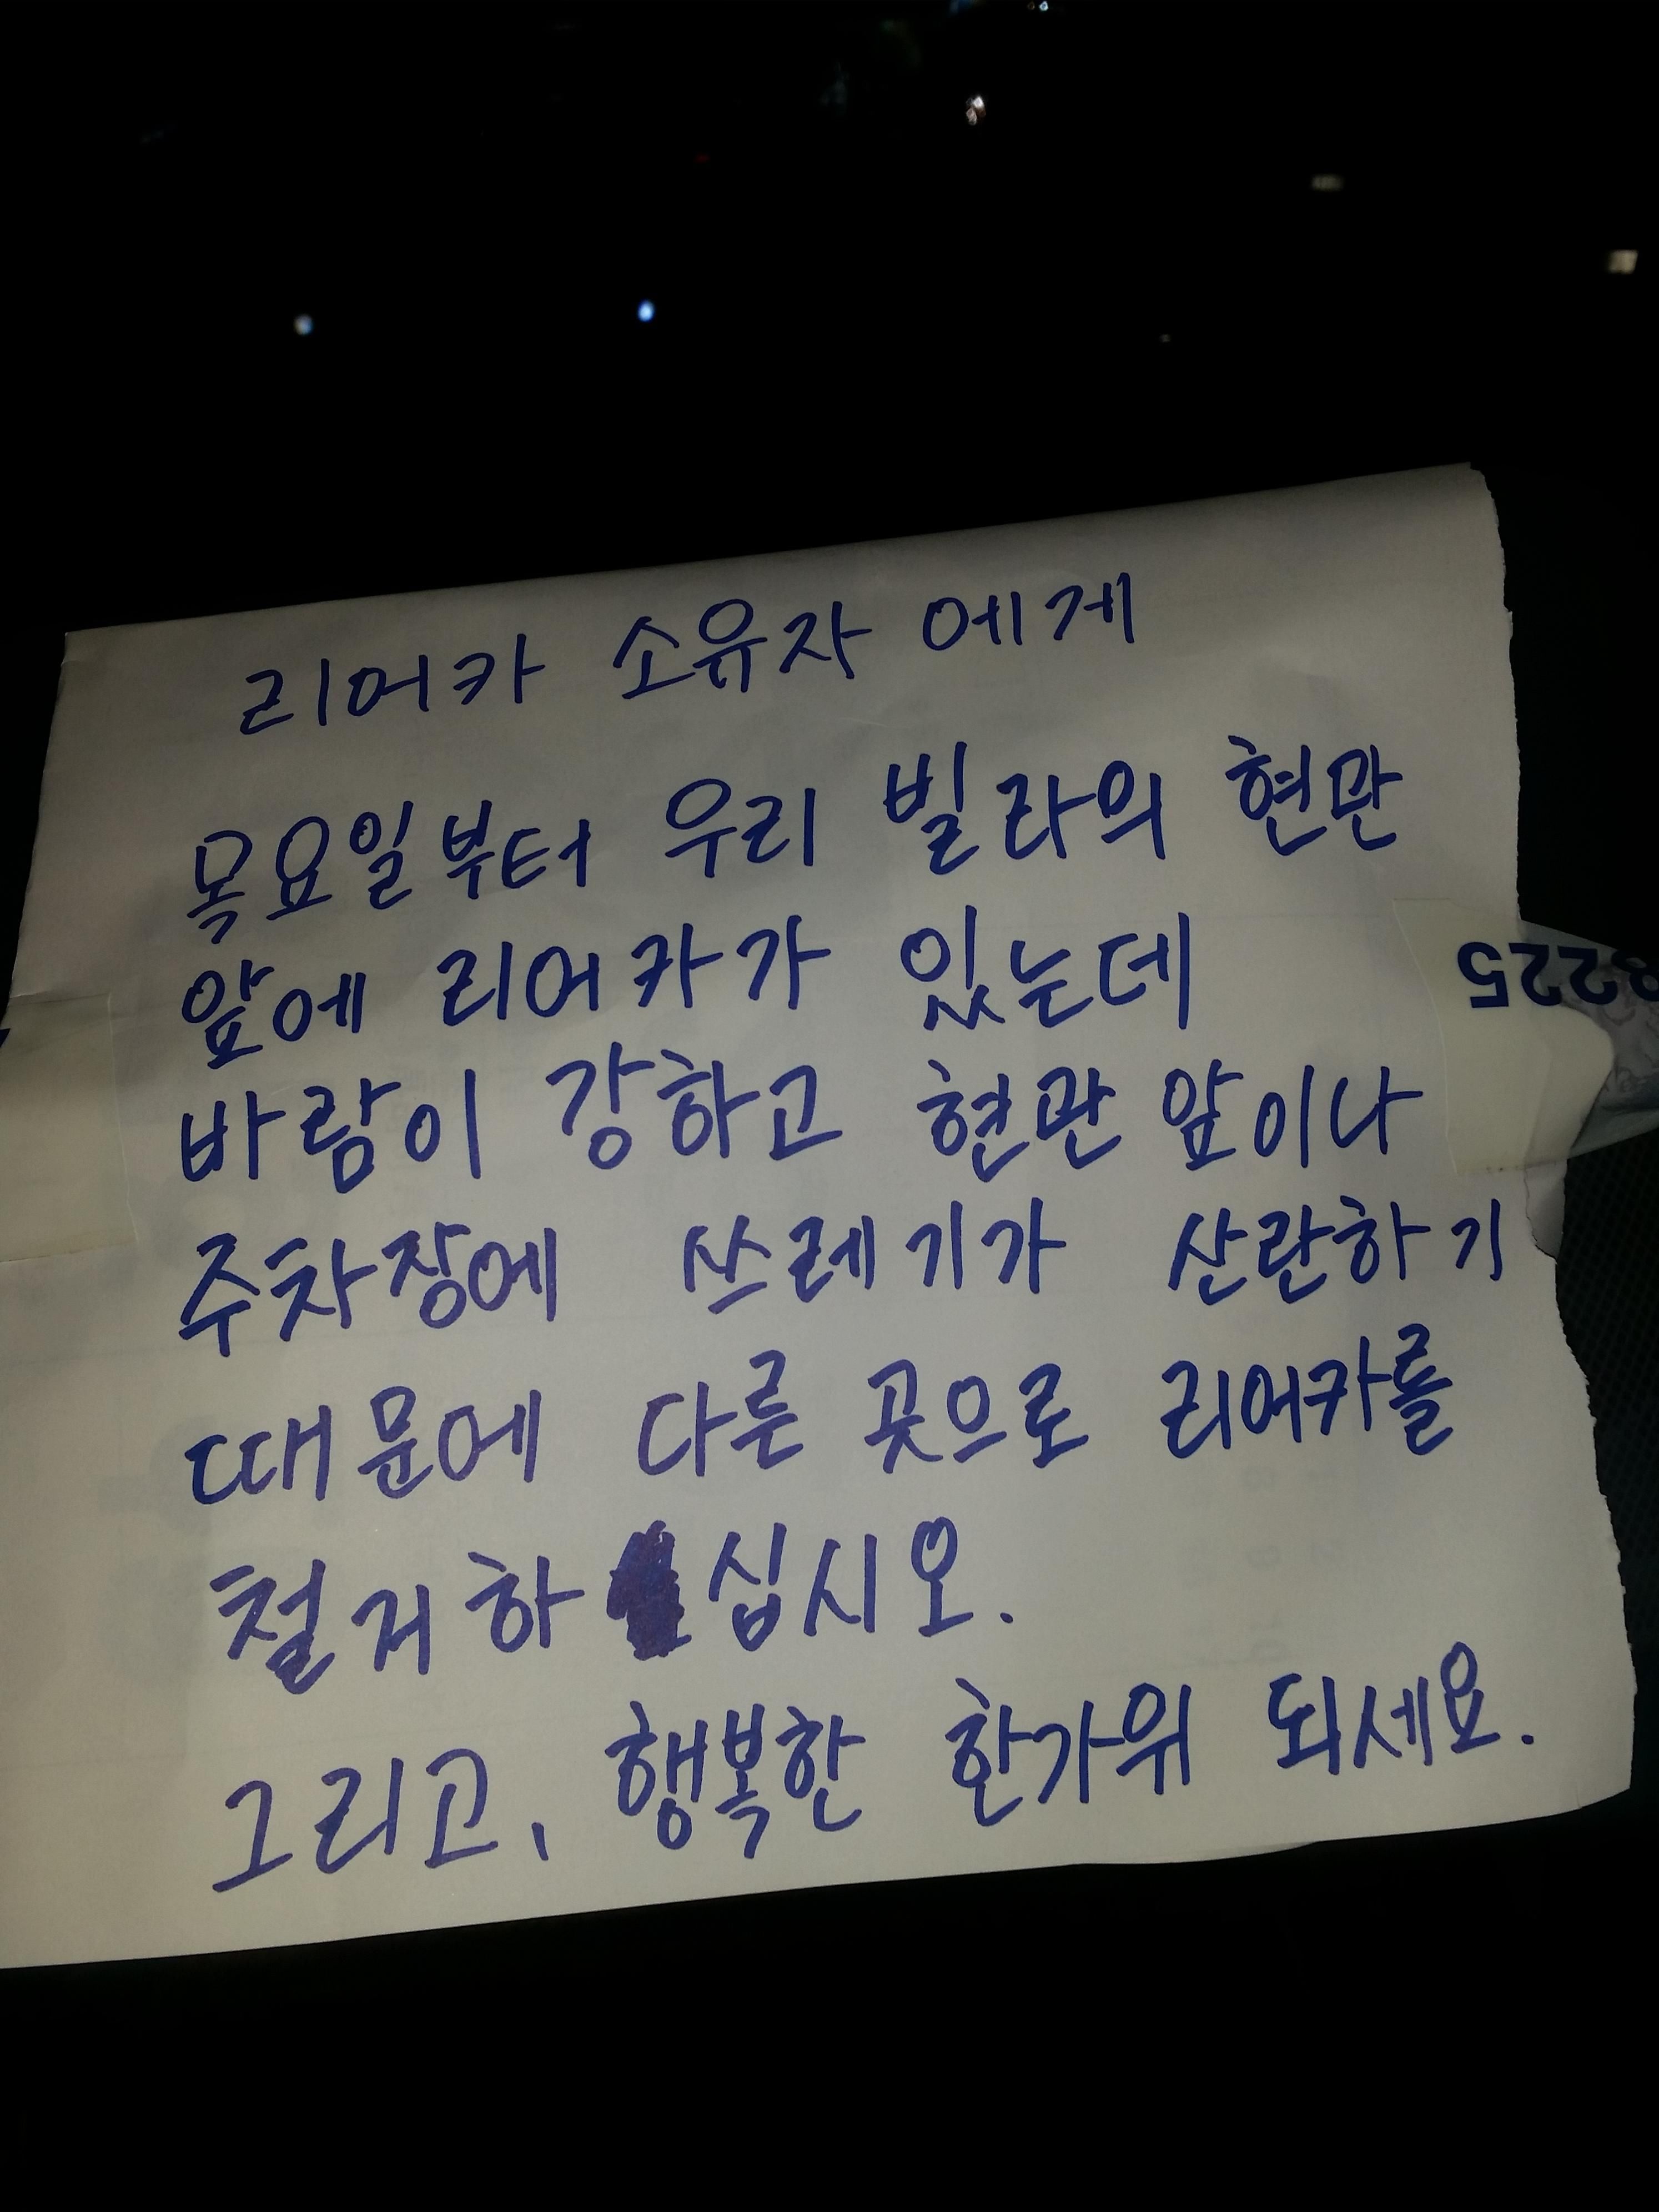 리어카 소유자 에게
목요일부터 우리 빌라의 현관
앞에 리어카가 있는데
바람이 강하고 현관 앞이나
주차장에 쓰레기가 산란하기
때문에 다른 곳으로 리어카를
철거하십시오.
그리고, 행복한 한가위 되세요.
3225